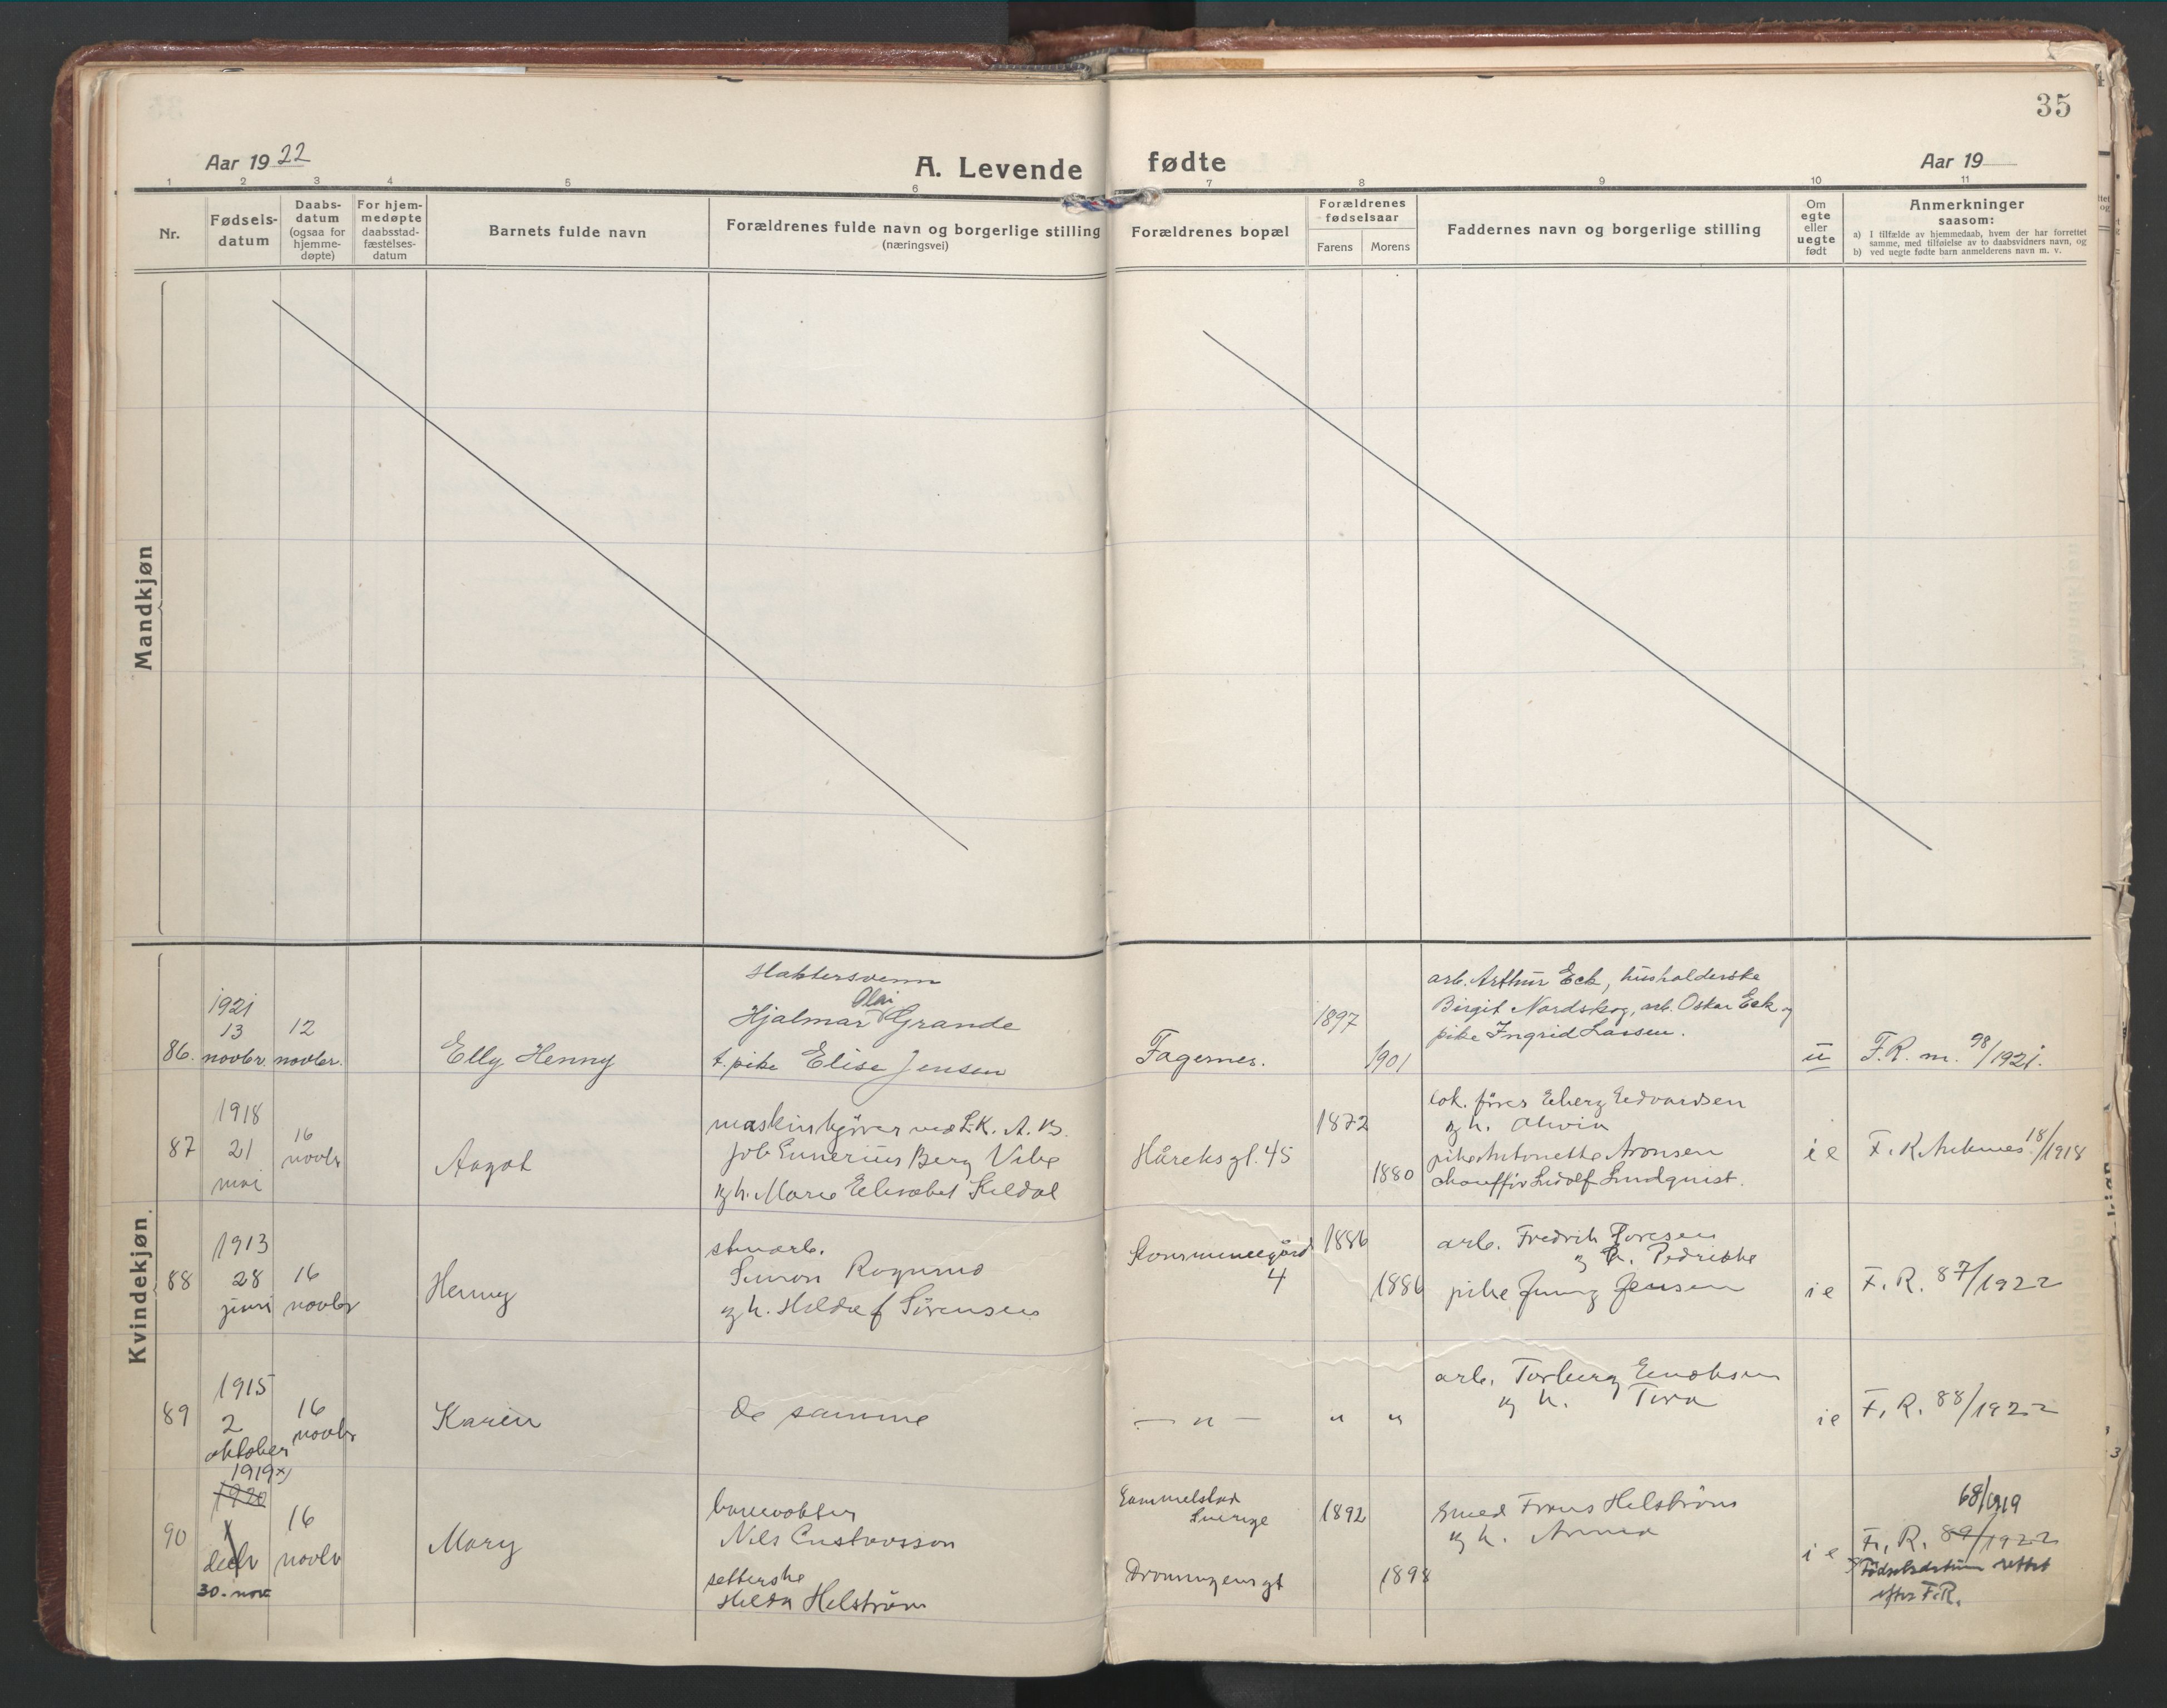 35
Aar 1922
A. Levende fødte
Aar 19
1 2 3 4 5 6 7 8 9 10 11
Nr.
Fødsels-
datum
Daabs-
datum
(ogsaa for
hjemme-
døpte)
For hjem-
medøpte
daabsstad-
fæstelses-
datum
Barnets fulde navn
Forældrenes fulde navn og borgerlige stilling
(næringsvei)
Forældrenes bopæl
Forældrenes
fødselsaar
Farens
Morens
Faddernes navn og borgerlige stilling
Om
egte
eller
uegte
født
Anmerkninger
saasom:
a) I tilfælde av hjemmedaab, hvem der har forrettet
samme, med tilføielse av to daabsvidners navn, og
b) ved uegte fødte barn anmelderens navn m. v.
Mandkjøn
Kvindekjøn.
86.
1921
13
novbr.
12
novbr.
Elly Henny
slaktersvenn
Hjalmar Olai Grande
t. pike Elise Jensen
Fagernes.
1897
1901
arb. Arthur Eck, husholderske
Birgit Nordskog, arb. Oskar Eck og
pike Ingrid Larsen.
u
F.R. m. 98/1921.
87
1918
21
mai
16
novbr
Aagot
maskinkjörer ved L.K. A.B.
Job Ennerius Berg Vibe
og h. Marie Elisabet Keldal
Håreksgt. 45
1872
1880
lok. förer Edvardsen
og h. Alvin
pike Antonette Aronsen
chaufför Ludolf Lindquist.
i e
F. R. Ankenes 18/1918
88
1913
28
juni
16
novbr
Henny
stenarb.
Simon Rognmo
og h. Hilda f Sörensen
Kommunegård
4
1886
1886
arb. Fredrik
og h. Pedrikke
pike Jenny Jensen
i e
F. R. 87/1922
89
1915
2
oktober
16
novbr
Karin
de samme
— " —
" "
arb. Torberg Enoksen
og h. Tora
i e
F. R. 88/1922
90
1919 x)
1920
1
decbr
30. nov.
16
novbr
Mary
banevokter
Nils Gustavsson
setterske
Hilda Helström
Gammelstad
Sverige
Dronningensgt
1892
1898
smed Frans Helström
og h. Anna
i e
68/1919
F. R. 89/1922
x) Födselsdatum rettet
efter F.R.